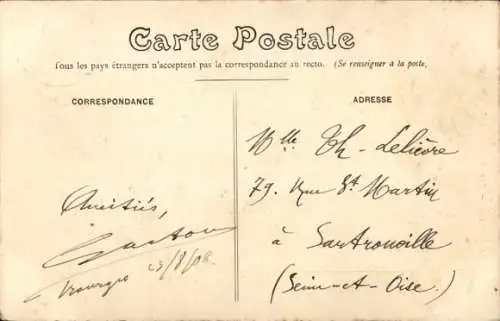 Carte Postale
Tous les pays étrangers n'acceptent pas la correspondance au recto. (Se renseigner à la poste,
CORRESPONDANCE
Amitiés,
Gaston
23/8/08
ADRESSE
Mlle Th. Lelièvre
79. Rue St Martin
à Sartrouville
(Seine-et-Oise.)